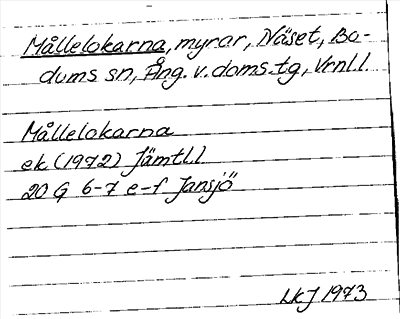 Mållelokarna, myrar, Näset, Bo-
dums sn, Ång. v. doms. tg, Vrnl l
Mållelokarna
ek (1972) Jämtl. l
20 G 6-7 e-f Jansjö
LKJ 1973